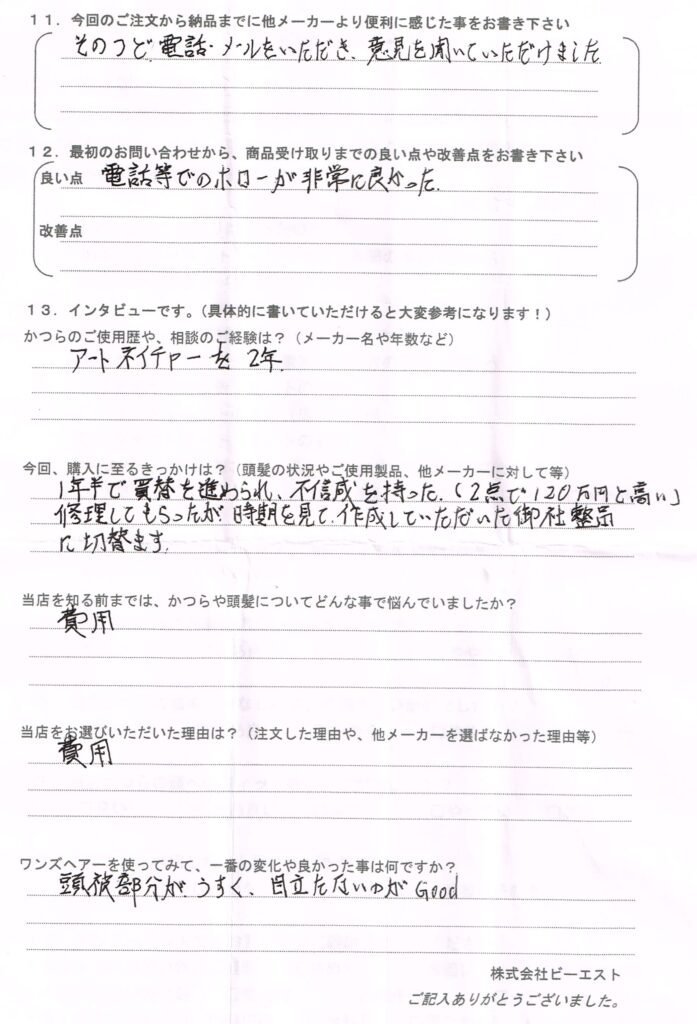 １１．今回のご注文から納品までに他メーカーより便利に感じた事をお書き下さい
そのつど、電話・メールをいただき、意見を聞いていただけました
１２．最初のお問い合わせから、商品受け取りまでの良い点や改善点をお書き下さい
良い点 電話等でのホローが非常に良かった.
改善点
１３．インタビューです。（具体的に書いていただけると大変参考になります！）
かつらのご使用歴や、相談のご経験は？（メーカー名や年数など）
アートネイチャーを 2年.
今回、購入に至るきっかけは？（頭髪の状況やご使用製品、他メーカーに対して等）
1年半で買替を進められ、不信感を持った.（2点で120万円と高い」
修理してもらったが時期を見て.作成していただいた御社製品
に切替ます.
当店を知る前までは、かつらや頭髪についてどんな事で悩んでいましたか？
費用
当店をお選びいただいた理由は？（注文した理由や、他メーカーを選ばなかった理由等）
費用
ワンズヘアーを使ってみて、一番の変化や良かった事は何ですか？
頭皮部分が、うすく、目立たないのが Good
株式会社ビーエスト
ご記入ありがとうございました。